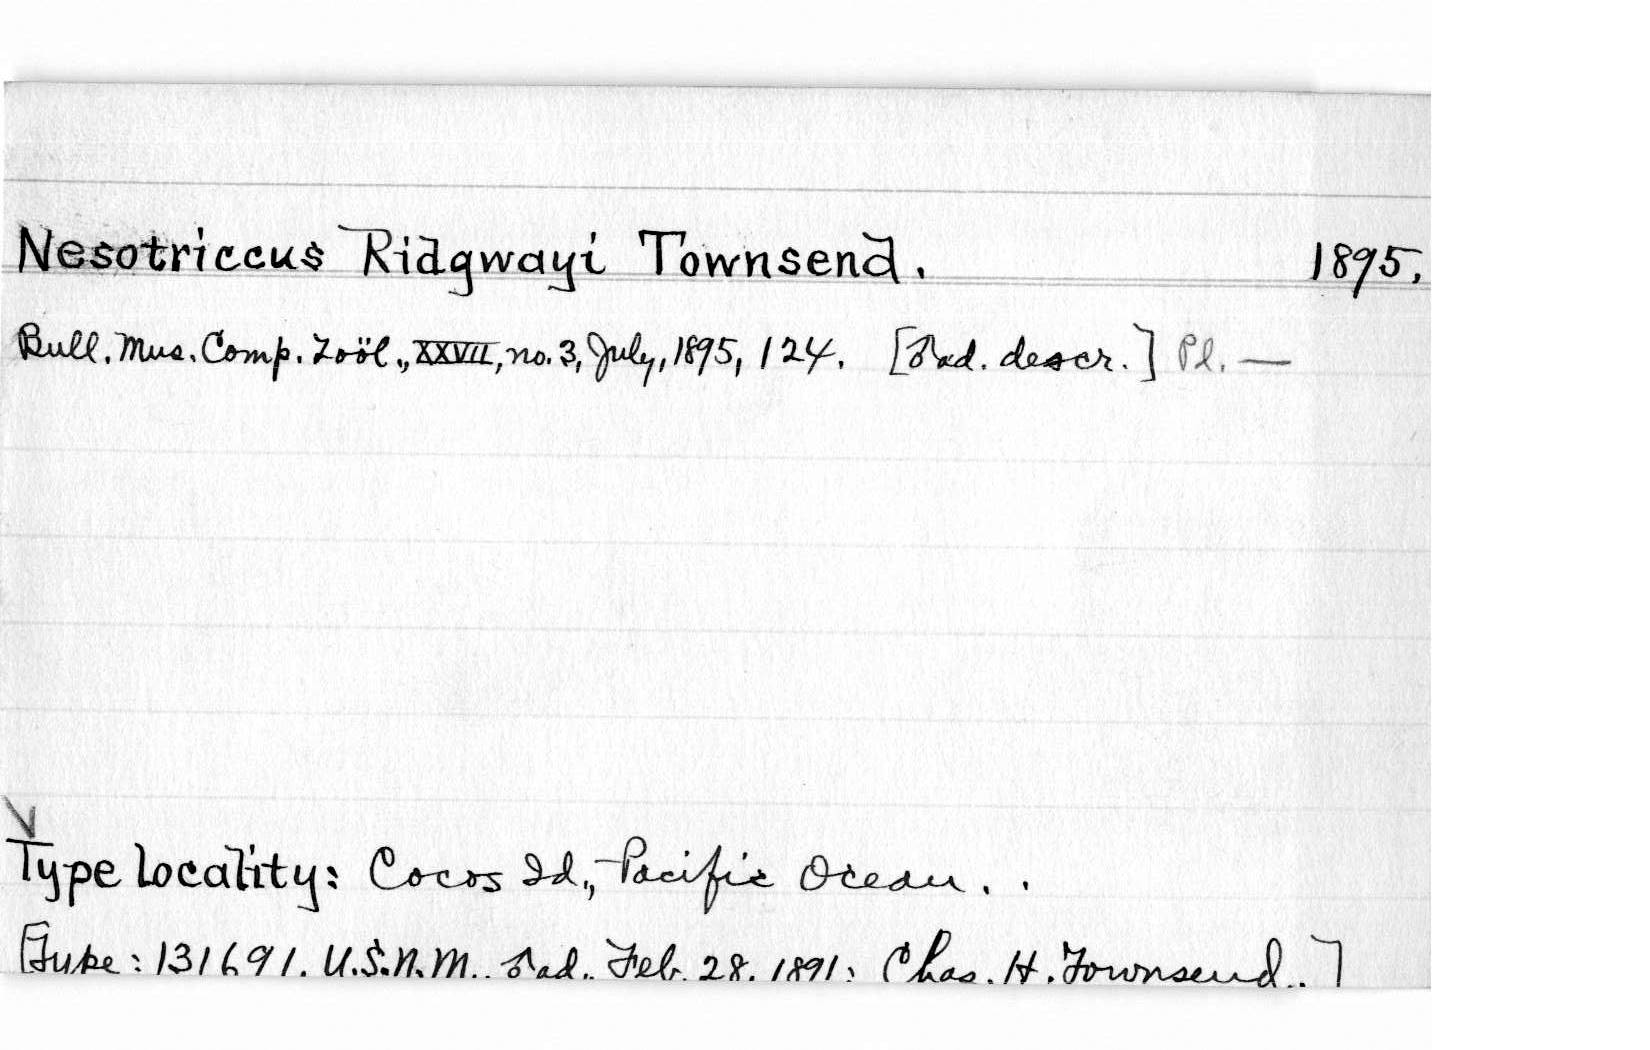 Nesotriccus Ridgwayi Townsend. 1895.
Bull. Mus. Comp. Zoöl., XXVII, no. 3, July, 1895, 124. [♂ad. descr.] Pl. —
Type locality: Cocos Id., Pacific Ocean. .
[Type: 131691. U.S.N.M.. ♂ad.. Feb. 28. 1891; Chas. H. Townsend..]